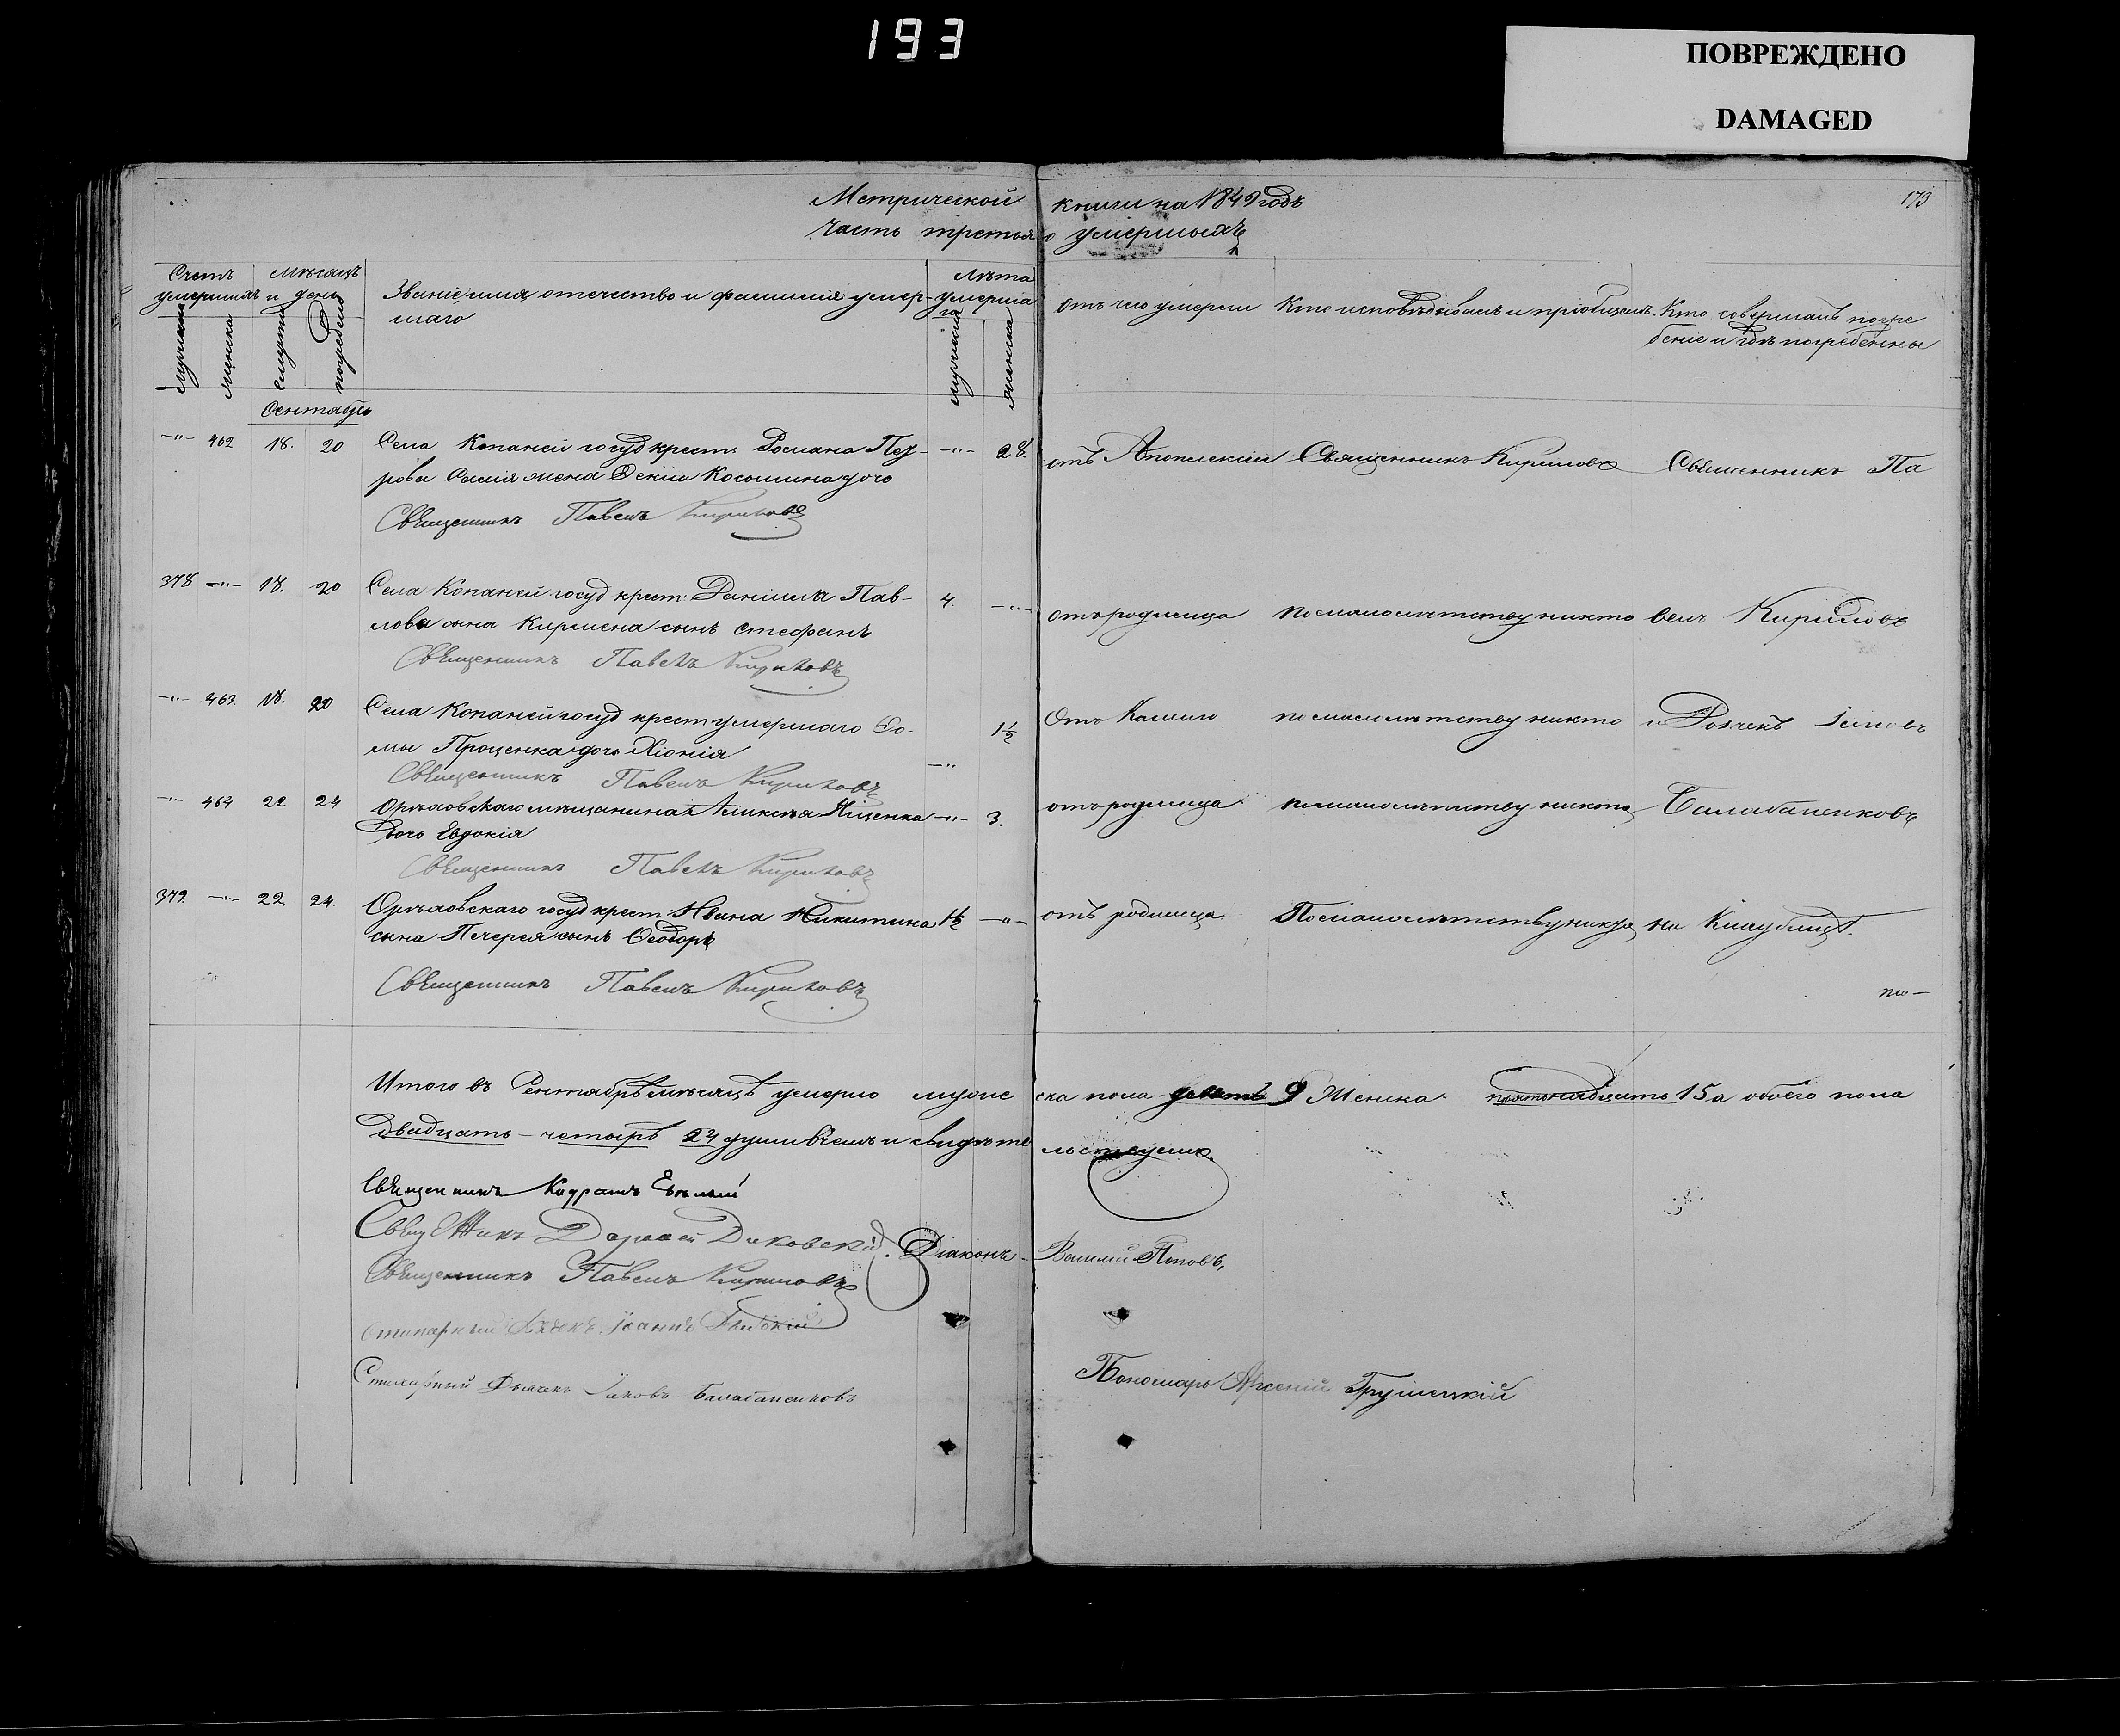 193
ПОВРЕЖДЕНО
DAMAGED
173
Метрической книги на 1849 годъ
Часть третья о умершихъ
Счетъ умершихъ
Мѣсяцъ и день
Званіе, имя, отечество и фамилія умершаго
Лѣта умершаго
Отъ чего умерли
Кто исповѣдывалъ и пріобщалъ
Кто совершалъ погребеніе и гдѣ погребены
мужска
женска
смерти
погребено
мужска
женска
Сентябрь
-"- 462 18. 20 Села Копаней госуд крест: Романа Пет-
рова жена дочь
-"- 28. отъ Священникъ Кириловъ Священникъ Па
Священникъ Павелъ Кириловъ
378 -"- 18. 20 Села Копаней госуд крест: Даніила Пав-
лова сына сынъ Стефанъ
4. -"- отъ родимца по малолѣтству никто велъ Кириловъ
Священникъ Павелъ Кириловъ
-"- 463 18. 20 Села Копаней госуд крест умершаго Ѳо-
мы Проценка дочь Хіонія
-"- 1½ Отъ Кашлю по малолѣтству никто
Священникъ Павелъ Кириловъ
-"- 464 22 24 Орѣховскаго мѣщанина Алексѣя дочь Евдокія
-"- 3. отъ родимца по малолѣтству никто Балабаненковъ
Священникъ Павелъ Кириловъ
379. -"- 22. 24. Орѣховскаго госуд крест: Ивана Никитина
сына Печерея сынъ Ѳеодоръ
1½ -"- отъ родимца По малолѣтству никто на Кладбищѣ.
Священникъ Павелъ Кириловъ
Итого въ Сентябрѣ мѣсяцѣ умерло мужеска пола девять 9 Женска пятьнадцать 15 а обоего пола
Двадцать-четыре 24 души въ чемъ и свидѣтельствуемъ.
Священникъ Кодратъ
Священникъ Діаконъ Василій Поповъ,
Священникъ Павелъ Кириловъ
Стихарный Дьячекъ Іоаннъ
Стихарный Дьячекъ Іаковъ Балабаненковъ
Пономарь Арсеній Грушецкій